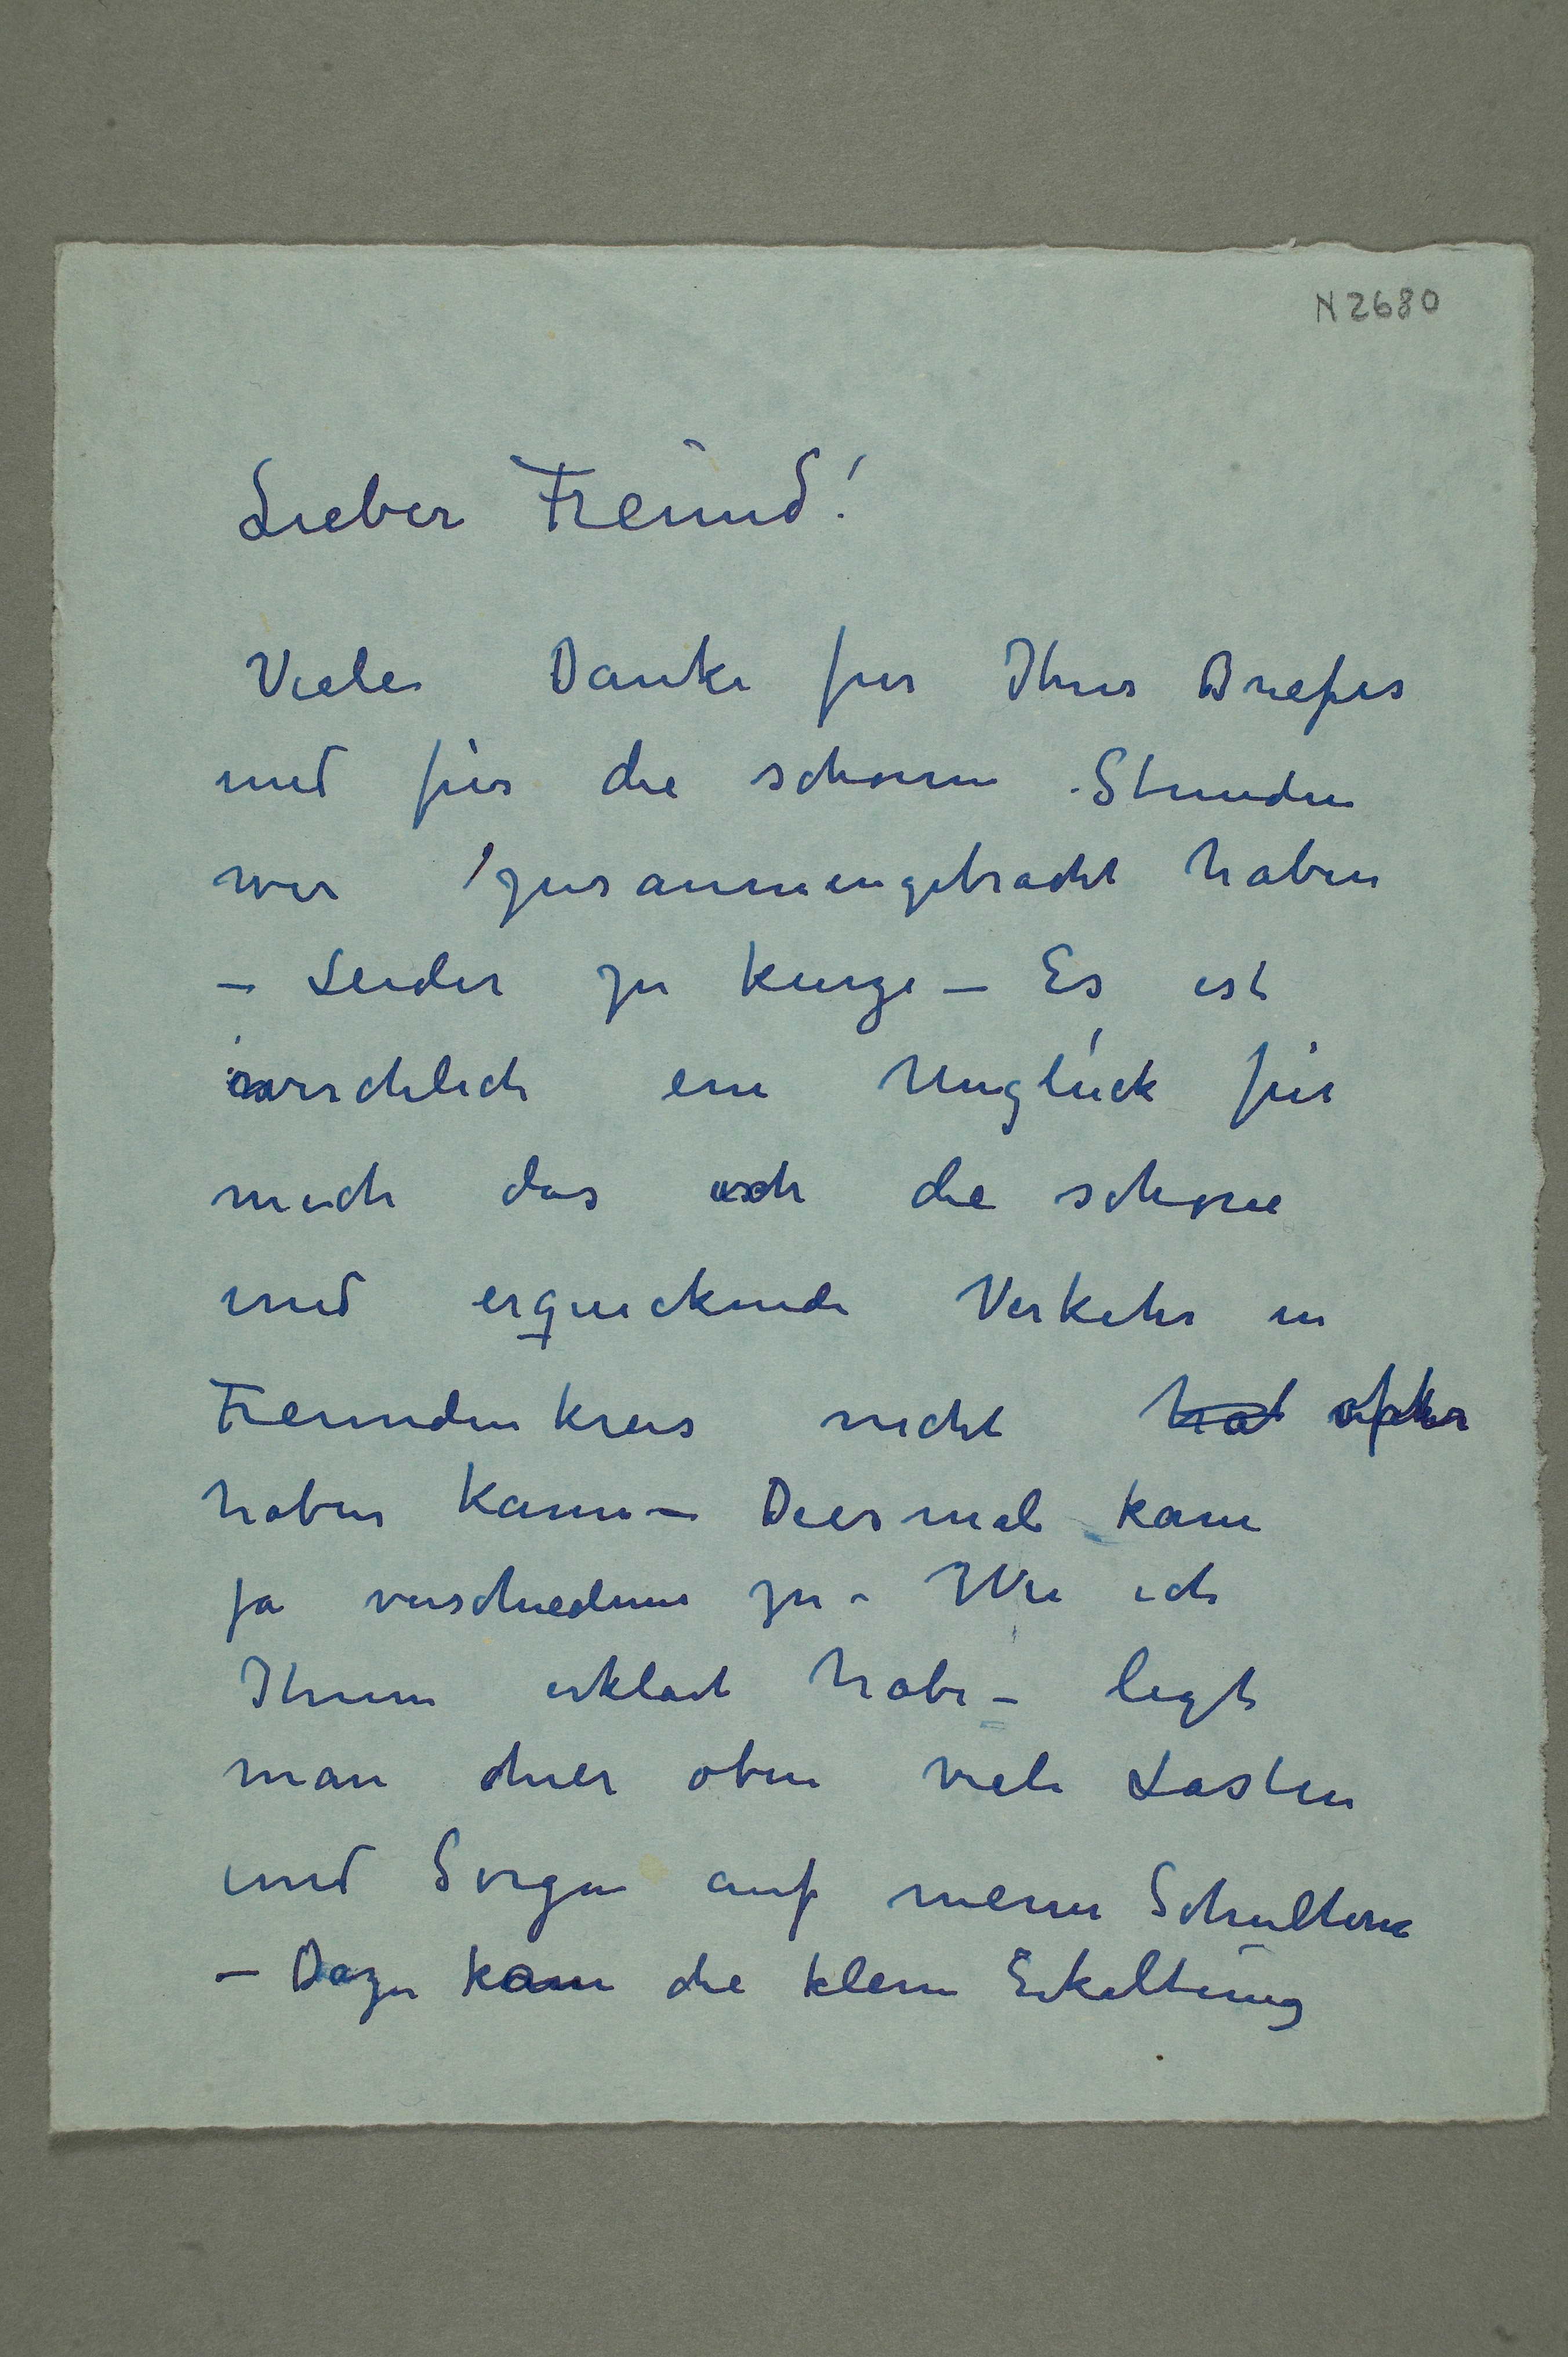 N 2680
Lieber Freund!
Viele Danke fur Ihrer Briefes
und für die schonen Stunden
wir zusammengebracht haben
– Leider zu kurze – Es ist
wirchlich ein Unglück für
mich das ich die schone
und erquickende Verkehr in
Freundenkreis nicht hat ofter
haben kann – Diesmal kam
ja verschiedene zu – Wie ich
Ihnen erklart habe – legt
man hier oben viele Lasten
und Sorgen auf meine Schultern
– Dazu kam die kleine Erkaltung